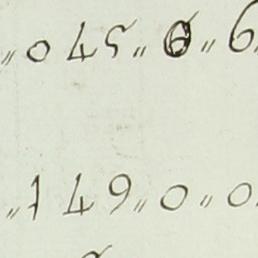 „ 045 „ 6 „ 6
„ 149 „ 0 „ 0